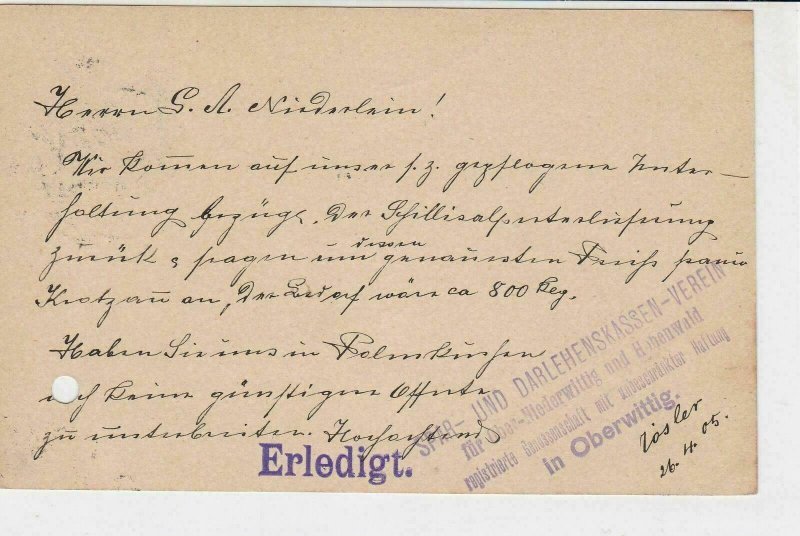 Herrn G. A. Niederlein!
Wir kommen auf unser s. z. gepflogene Unter-
haltung bezügl. der Chilisalpeterlieferung
zurück & fragen um dessen genauesten Preis franco
Kratzau an, der Bedarf wäre ca 800 Kg.
Haben Sie uns in Palmkuchen
noch keine günstigere Offerte
zu unterbreiten. Hochachtend
SPAR- UND DARLEHENSKASSEN-VEREIN
für Ober-Niederwittig und Hohenwald
registrierte Genossenschaft mit unbeschränkter Haftung
in Oberwittig.
Rösler
26.4.05.
Erledigt.